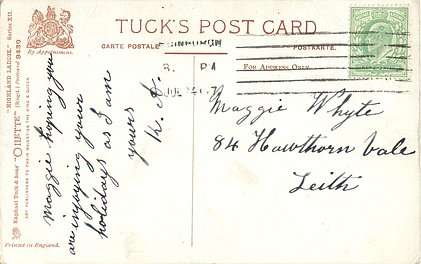 TUCK'S POST CARD
CARTE POSTALE
POSTKARTE.
FOR ADDRESS ONLY.
By Appointment.
"HIGHLAND LADDIE." Series XII.
Raphael Tuck & Sons' "OILETTE" [Regd.] Postcard 9439
ART PUBLISHERS TO THEIR MAJESTIES THE KING & QUEEN
Printed in England.
Maggie hoping you
are enjoying your
holidays as I am
yours
K. A.
Maggie Whyte
84 Hawthorn Vale
Leith